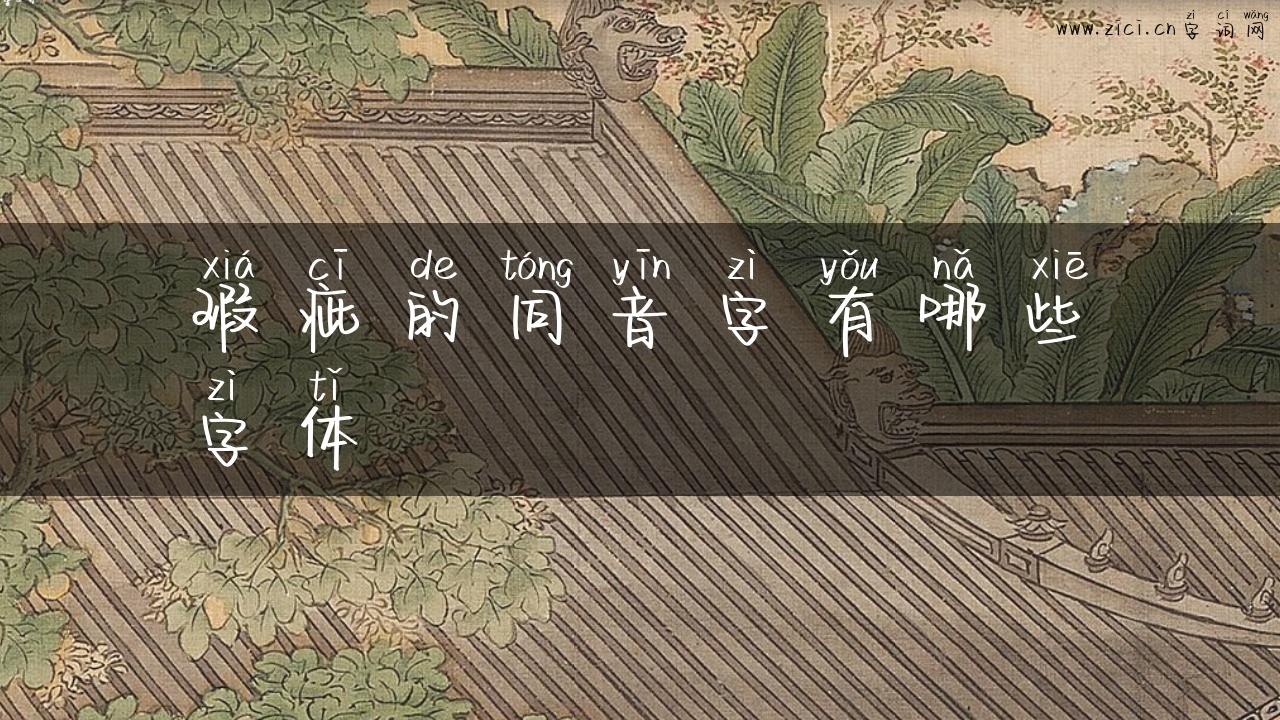 zì cí wǎng
www.zici.cn 字 词 网
xiá cī de tóng yīn zì yǒu nǎ xiē
瑕 疵 的 同 音 字 有 哪 些
zì tǐ
字 体